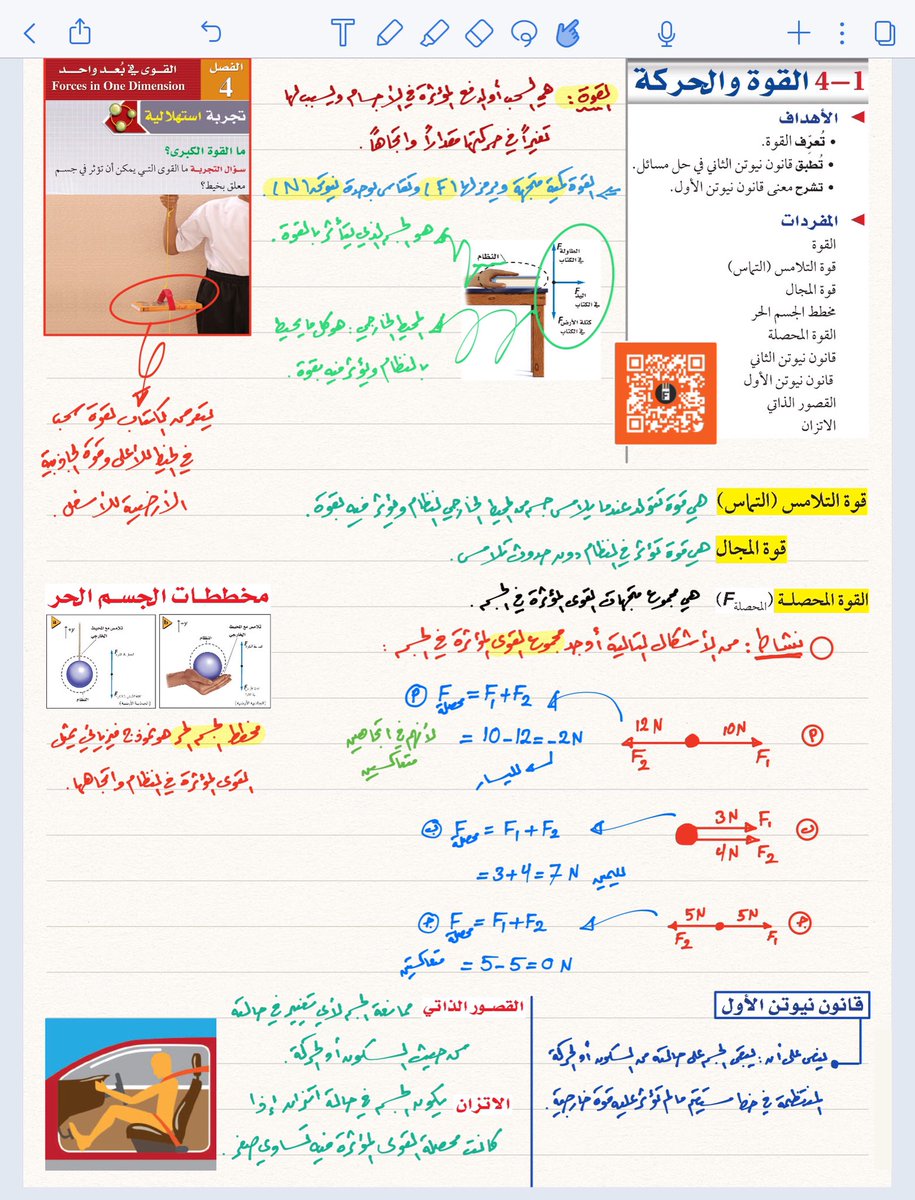 4–1 القوة والحركة
الأهداف
• تُعرّف القوة.
• تُطبق قانون نيوتن الثاني في حل مسائل.
• تشرح معنى قانون نيوتن الأول.
المفردات
القوة
قوة التلامس (التماس)
قوة المجال
مخطط الجسم الحر
القوة المحصلة
قانون نيوتن الثاني
قانون نيوتن الأول
القصور الذاتي
الاتزان
القوة: هي السحب أو الدفع المؤثرة في الأجسام ويسبب لها
تغيراً في حركتها مقداراً واتجاهاً.
القوة كمية متجهة ويرمز لها (F) وتقاس بوحدة نيوتن (N)
هو الجسم الذي يتأثر بالقوة.
المحيط الخارجي: هو كل ما يحيط
بالنظام ويؤثر فيه بقوة.
النظام
F الطاولة في الكتاب
F اليد في الكتاب
F كتلة الأرض في الكتاب
الفصل 4
القوى في بُعد واحد
Forces in One Dimension
تجربة استهلالية
ما القوة الكبرى؟
سؤال التجربة ما القوى التي يمكن أن تؤثر في جسم
معلق بخيط؟
يتعرض الكتاب لقوة سحب
في الخيط للأعلى وقوة الجاذبية
الأرضية للأسفل.
قوة التلامس (التماس) هي قوة تتولد عندما يلامس جسم من المحيط الخارجي النظام ويؤثر فيه بقوة.
قوة المجال هي قوة تؤثر في النظام دون حدوث تلامس.
القوة المحصلة (F المحصلة) هي مجموع متجهات القوى المؤثرة في الجسم.
نشاط: من الأشكال التالية أوجد مجموع القوى المؤثرة في الجسم:
مخططات الجسم الحر
+y
تلامس مع المحيط الخارجي
النظام
+y
تلامس مع المحيط الخارجي
النظام
مخطط الجسم الحر هو نموذج فيزيائي يمثل
القوى المؤثرة في النظام واتجاهها.
أ 12N 10N
F₂ F₁
أ F محصلة = F₁ + F₂
= 10 – 12 = –2N
لليسار
لأنهم في اتجاهين
متعاكسين
ب 3N F₁
4N F₂
ب F محصلة = F₁ + F₂
= 3 + 4 = 7 N لليمين
ج 5N 5N
F₂ F₁
ج F محصلة = F₁ + F₂
= 5 – 5 = 0 N
قانون نيوتن الأول
ينص على أن: يبقى الجسم على حالته من السكون أو الحركة
المنتظمة في خط مستقيم ما لم تؤثر عليه قوة خارجية.
القصور الذاتي ممانعة الجسم لأي تغيير في حالته
من حيث السكون أو الحركة.
الاتزان يكون الجسم في حالة اتزان إذا
كانت محصلة القوى المؤثرة فيه تساوي صفر.